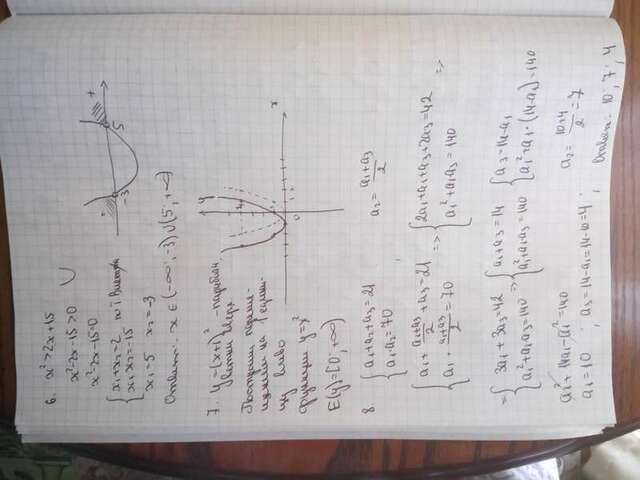 6. x²>2x+15
x²-2x-15>0
x²-2x-15=0
{x₁+x₂=2
x₁·x₂=-15
x₁=5 x₂=-3
+
-3
5
Ответ: x∈(-∞;-3)∪(5;+∞)
7. y=(x+1)² - парабола,
ветви вверх
на 1 единицу
влево
функции y=x²
E(y)=[0;+∞)
y
x
0
8. {a₁+a₂+a₃=21
a₁·a₂=70
a₂=(a₁+a₃)/2
{a₁+(a₁+a₃)/2+a₃=21
a₁·(a₁+a₃)/2=70
=> {2a₁+a₁+a₃+2a₃=42
a₁²+a₁a₃=140
=>
={3a₁+3a₃=42
a₁²+a₁a₃=140
=> {a₁+a₃=14
a₁²+a₁a₃=140
{a₃=14-a₁
a₁²+a₁·(14-a₁)=140
a₁²+14a₁-a₁²=140
a₁=10; a₃=14-a₁=14-10=4;
a₂=(10+4)/2=7
Ответ: 10; 7; 4